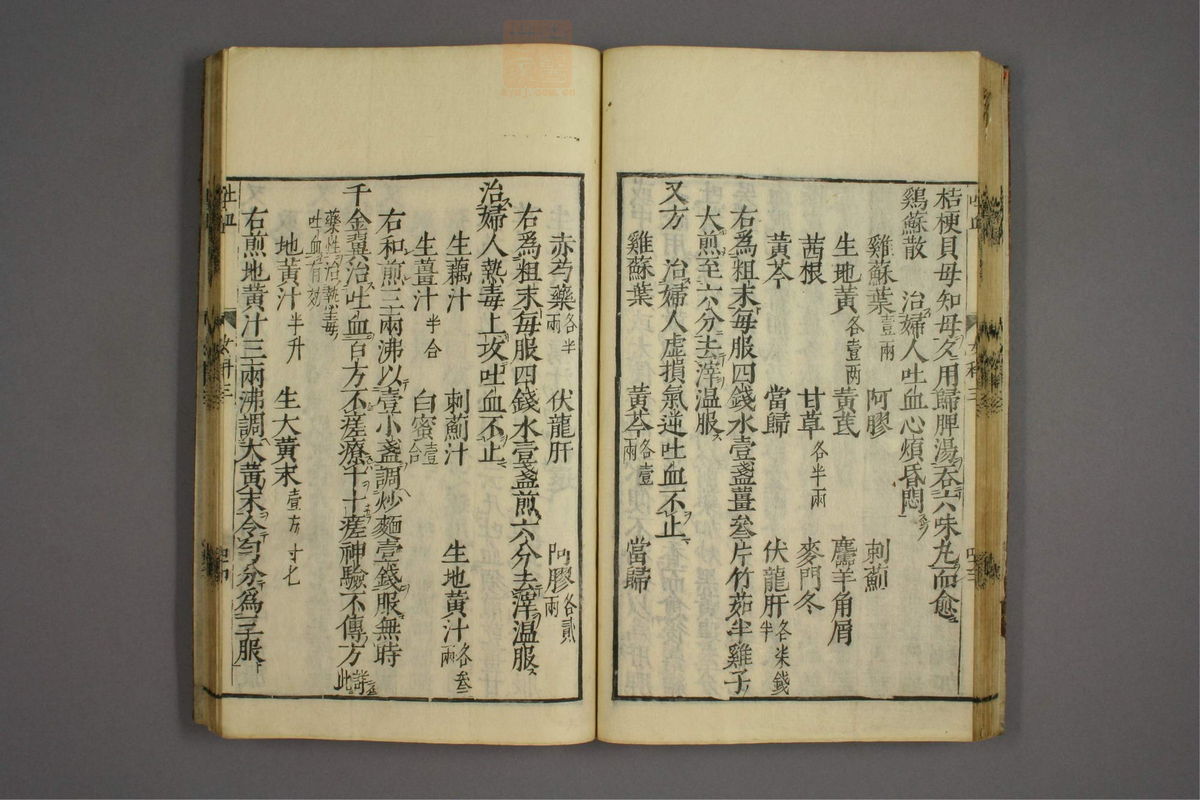 桔梗貝母知母夂用歸脾湯吞六味丸而愈
鷄蘇散　治婦人吐血心煩昏悶
雞蘇葉壹兩　阿膠　刺薊
生地黃各壹兩　黃芪　羚羊角屑
茜根　甘草各半兩　麥門冬
黃芩　當歸　伏龍肝各柒錢半
右爲粗末每服四錢水壹盞薑叄片竹茹半雞子
大煎至六分去滓温服
又方　治婦人虛損氣逆吐血不止
雞蘇葉　黃芩各壹兩　當歸
赤芍藥各半兩　伏龍肝　阿膠各貳兩
右爲粗末每服四錢水壹盞煎六分去滓温服
治婦人熱毒上攻吐血不止
生藕汁　刺薊汁　生地黃汁各叄兩
生薑汁半合　白蜜壹合
右和煎三兩沸以壹小盞調炒麵壹錢服無時
千金翼治吐血百方不瘥療十十瘥神驗不傳方詳此
藥性治熱毒吐血有效
地黃汁半升　生大黃末壹方寸匕
右煎地黃汁三兩沸調大黃末令勻分爲三服
吐血
女科三